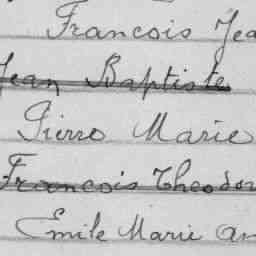 Francois Jea
Jean Baptiste
Pierre Marie
Francois Theodor
Emile Marie an